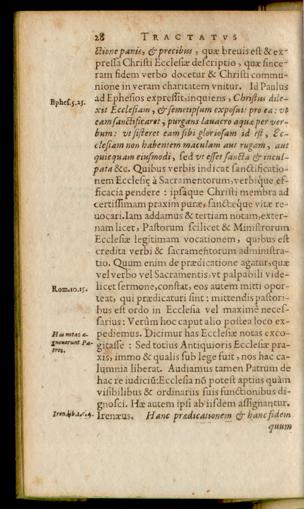 28 TRACTATVS
ctione panis, & precibus, quæ breuis est & ex-
pressa Christi Ecclesiæ descriptio, quæ since-
ram fidem verbo docetur & Christi commu-
nione in veram charitatem vnitur. Id Paulus
Ephes.5.25.
ad Ephesios expressit, inquiens, Christus dile-
xit Ecclesiam, & semetipsum exposuit pro ea: vt
eam sanctificaret, purgans lauacro aquæ per ver-
bum: vt sisteret eam sibi gloriosam id est, Ec-
clesiam non habentem maculam aut rugam, aut
quicquam eiusmodi, sed vt esset sancta & incul-
pata &c. Quibus verbis indicat sanctificatio-
nem Ecclesiæ à Sacramentorum, verbique ef-
ficacia pendere: ipsaque Christi membra ad
certissimam praxim puræ, sanctæque vitæ re-
uocari. Iam addamus & tertiam notam, exter-
nam licet, Pastorum scilicet & Ministrorum
Ecclesiæ legitimam vocationem, quibus est
credita verbi & sacramentorum administra-
tio. Quum enim de prædicatione agatur, quæ
vel verbo vel Sacramentis, vt palpabili vide-
Rom.10.15.
licet sermone, constat, eos autem mitti opor-
teat, qui prædicaturi sint: mittendis pastori-
bus est ordo in Ecclesia vel maximè neces-
sarius: Verùm hoc caput alio postea loco ex-
Has notas a-
gnouerunt Pa-
tres.
pediemus. Dicimur has Ecclesiæ notas exco-
gitasse: Sed totius Antiquioris Ecclesiæ pra-
xis, immo & qualis sub lege fuit, nos hac ca-
lumnia liberat. Audiamus tamen Patrum de
hac re iudiciū: Ecclesia nō potest aptius quàm
visibilibus & ordinariis suis functionibus di-
gnosci. Hæ autem ipsi ab iisdem assignantur.
Irenæus. Hanc prædicationem & hanc fidem
quum